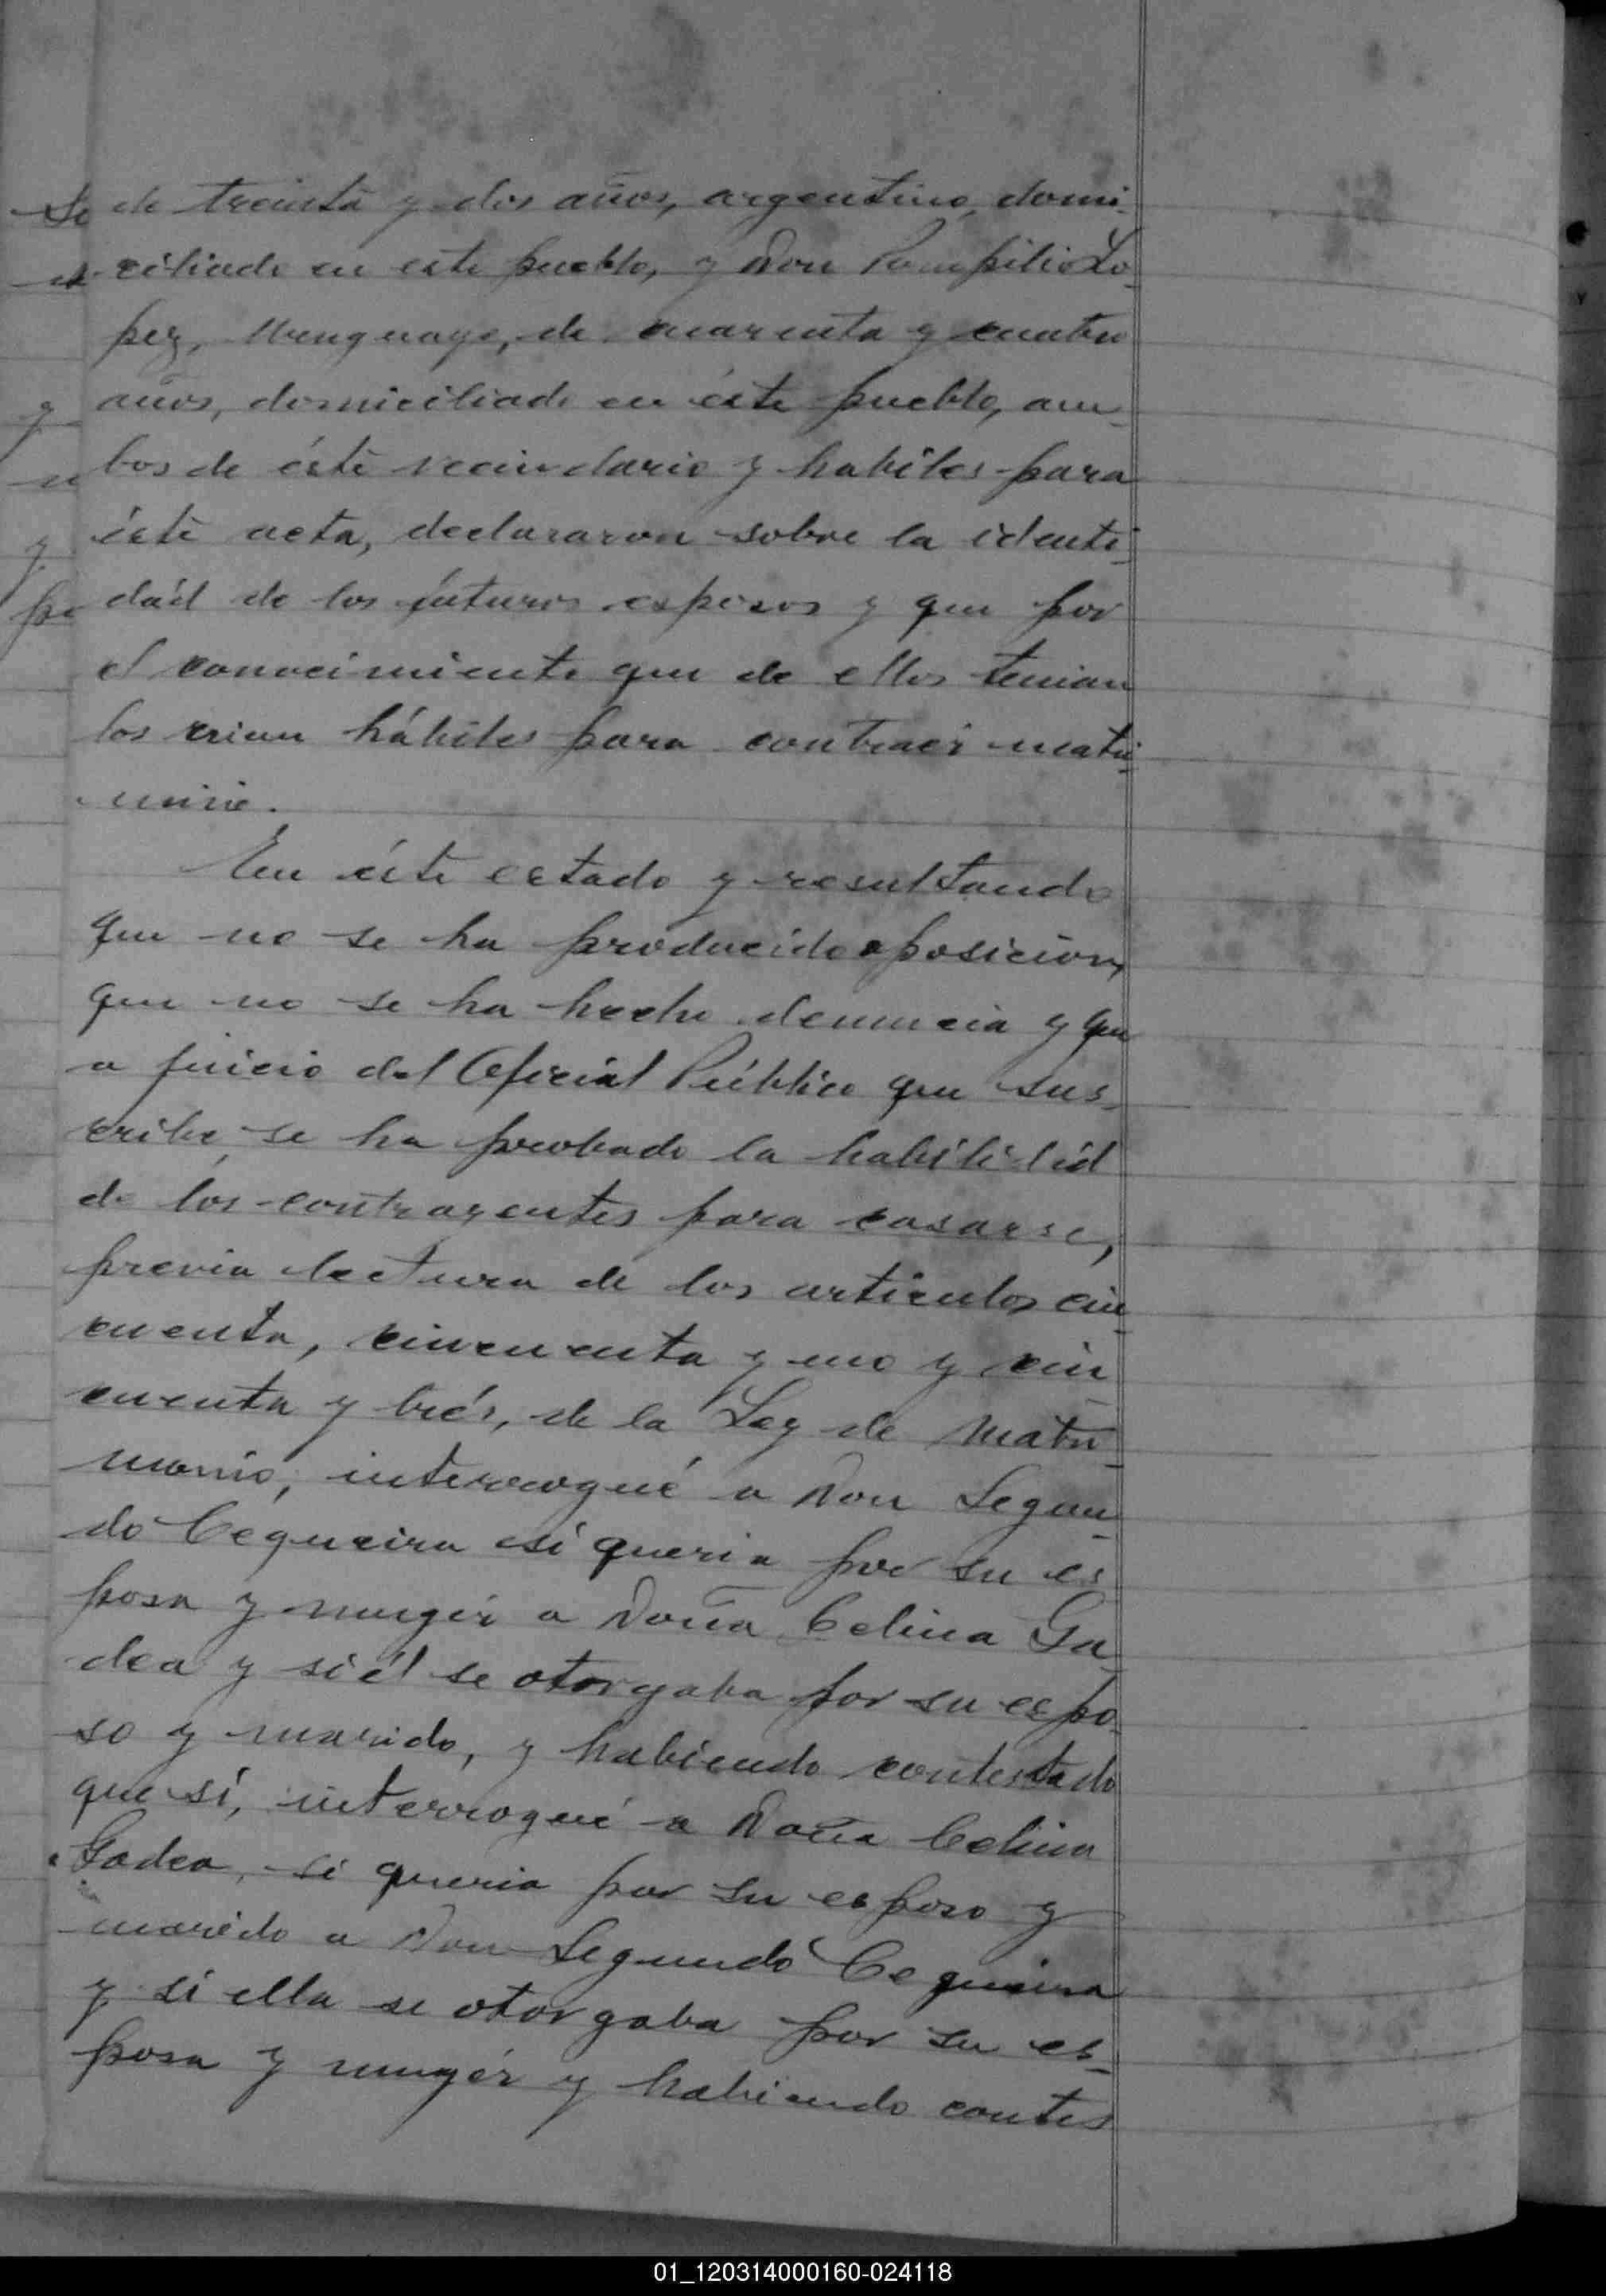 de treinta y dos años, argentino, domi-
ciliado en este pueblo, y Don Pompilio Lo-
pez, Uruguayo, de cuarenta y cuatro
años, domiciliado en éste pueblo, am-
bos de éste vecindario y habiles para
éste acta, declararon sobre la identi-
dád de los fúturos esposos y que por
el conocimiento que de ellos tenian
los crian hábiles para contraer matri-
monio.
En éste estado y resultando
que no se ha producido oposicion,
que no se ha hecho denuncia y que
a juicio del Oficial Público que sus-
cribe, se ha probado la habilidad
de los contrayentes para casarse,
previa lectura de los articulos cin-
cuenta, cincuenta y uno y cin-
cuenta y trés, de la Ley de Matri-
monio, interrogué a Don Segun-
do Cequeira si queria por su es-
posa y mugér a Doña Celina Ga-
dea y si él se otorgaba por su espo-
so y marido, y habiendo contestado
que sí, interrogué a Doña Celina
Gadea, si queria por su esposo y
marido a Don Segundo Cequeira
y si ella se otorgaba por su es-
posa y mugér y habiendo contes
01_120314000160-024118